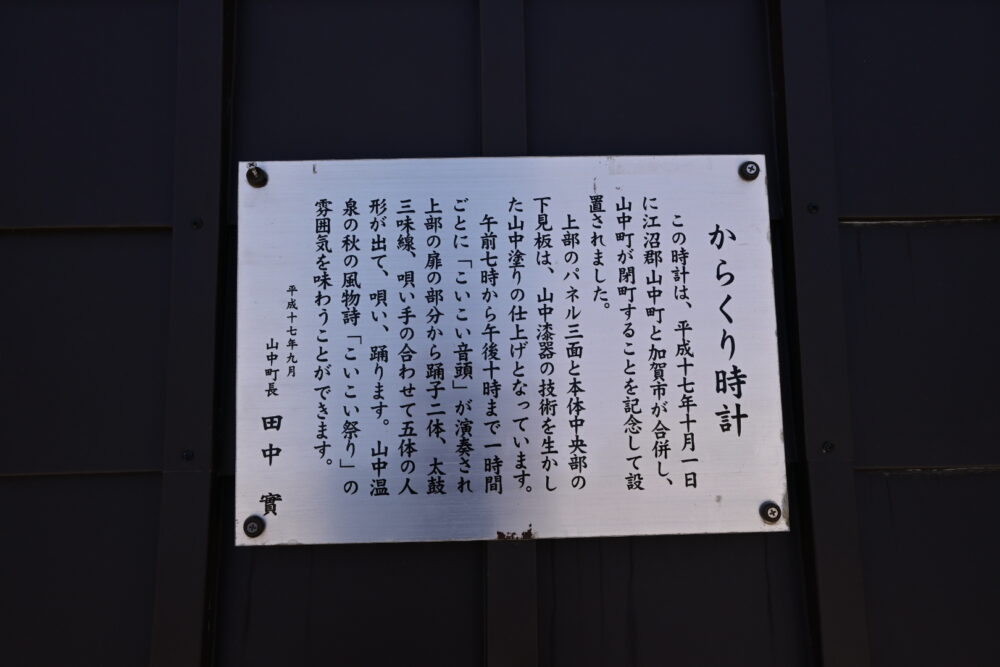 からくり時計
この時計は、平成十七年十月一日
に江沼郡山中町と加賀市が合併し、
山中町が閉町することを記念して設
置されました。
上部のパネル三面と本体中央部の
下見板は、山中漆器の技術を生かし
た山中塗りの仕上げとなっています。
午前七時から午後十時まで一時間
ごとに「こいこい音頭」が演奏され
上部の扉の部分から踊子二体、太鼓
三味線、唄い手の合わせて五体の人
形が出て、唄い、踊ります。山中温
泉の秋の風物詩「こいこい祭り」の
雰囲気を味わうことができます。
平成十七年九月
山中町長 田中 實